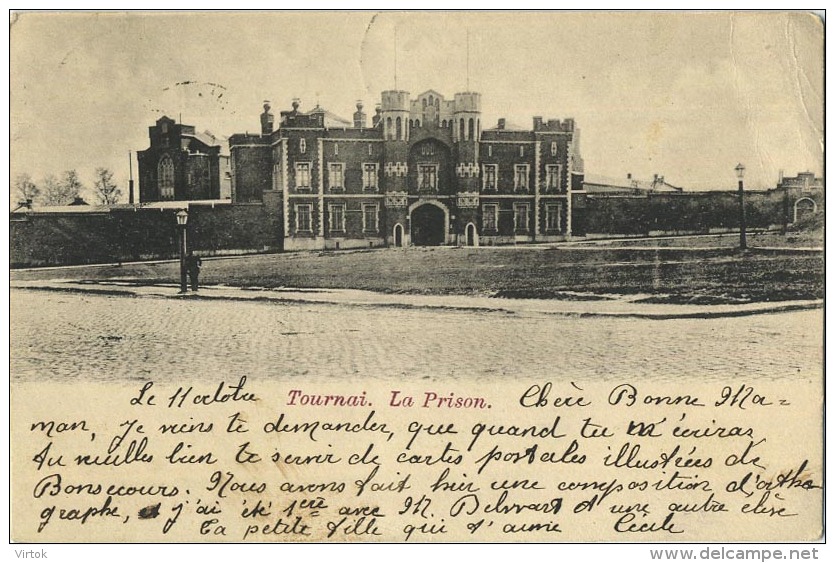 Le 11 octobre Tournai. La Prison. Chère Bonne Ma-
man, Je viens te demander, que quand tu m'écriras
tu veuilles bien te servir de cartes postales illustées de
Bonsecours. Nous avons fait hier une composition d'ortho
graphe, j'ai été 1ère avec M. et une autre élève
Ta petite fille qui t'aime Cécile
Virtok
delcampe.net